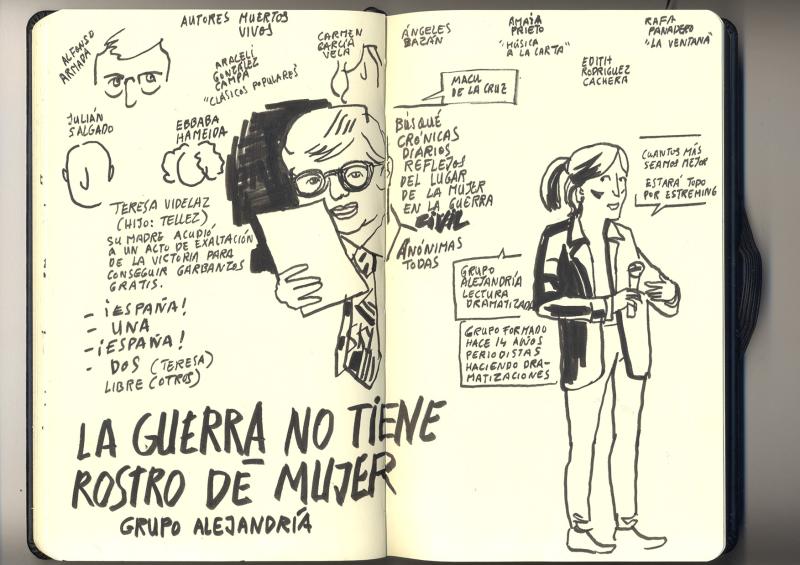 ALFONSO
ARMADA
AUTORES MUERTOS
VIVOS
ARACELÍ
GONZÁLEZ
CAMPA
"CLÁSICOS POPULARES"
CARMEN
GARCÍA
VELA
JULIÁN
SALGADO
EBBABA
HAMEIDA
TERESA VIDELAZ
(HIJO: TELLEZ)
SU MADRE ACUDIÓ
A UN ACTO DE EXALTACIÓN
DE LA VICTORIA PARA
CONSEGUIR GARBANZOS
GRATIS.
- ¡ESPAÑA!
- UNA
- ¡ESPAÑA!
- DOS (TERESA)
LIBRE (OTROS)
LA GUERRA NO TIENE
ROSTRO DE MUJER
GRUPO ALEJANDRÍA
ÁNGELES
BAZÁN
AMAIA
PRIETO
"MÚSICA
A LA CARTA"
RAFA
PANADERO
"LA VENTANA"
EDITH
RODRIGUEZ
CACHERA
MACU
DE LA CRUZ
BUSQUÉ
CRÓNICAS
DIARIOS
REFLEJOS
DEL LUGAR
DE LA MUJER
EN LA GUERRA
CIVIL
ANÓNIMAS
TODAS
CUANTOS MÁS
SEAMOS MEJOR
ESTARÁ TODO
POR ESTREMING
GRUPO
ALEJANDRÍA
LECTURA
DRAMATIZADA
GRUPO FORMADO
HACE 14 AÑOS
PERIODISTAS
HACIENDO DRA-
MATIZACIONES